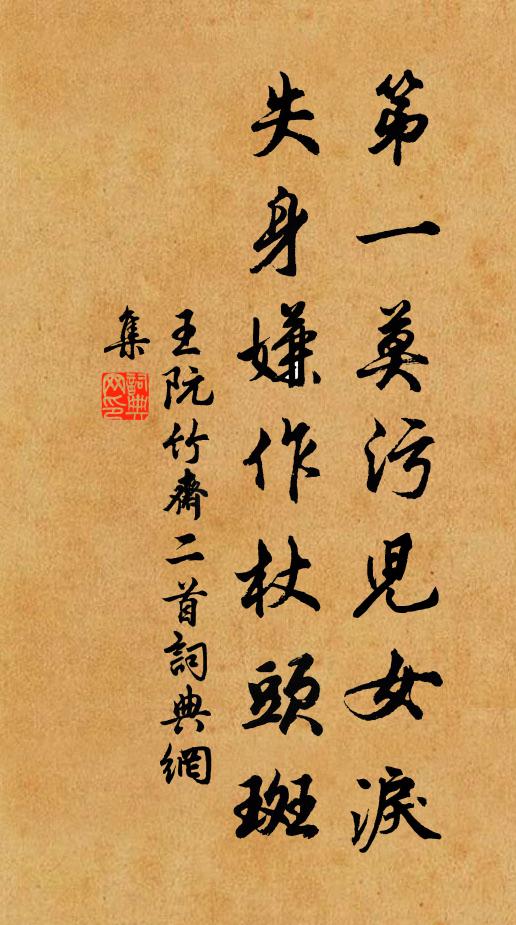 第一莫污児女淚
失身嫌作杖頭斑
王阮竹齋二首詞典網
集
詞典
网印